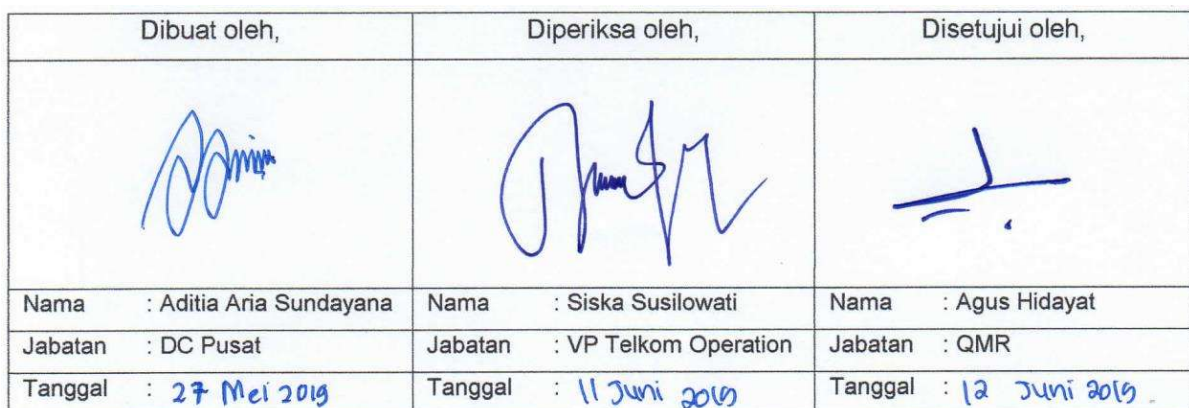 Dibuat oleh,
Diperiksa oleh,
Disetujui oleh,
Nama : Aditia Aria Sundayana
Nama : Siska Susilowati
Nama : Agus Hidayat
Jabatan : DC Pusat
Jabatan : VP Telkom Operation
Jabatan : QMR
Tanggal : 27 Mei 2019
Tanggal : 11 Juni 2019
Tanggal : 12 Juni 2019